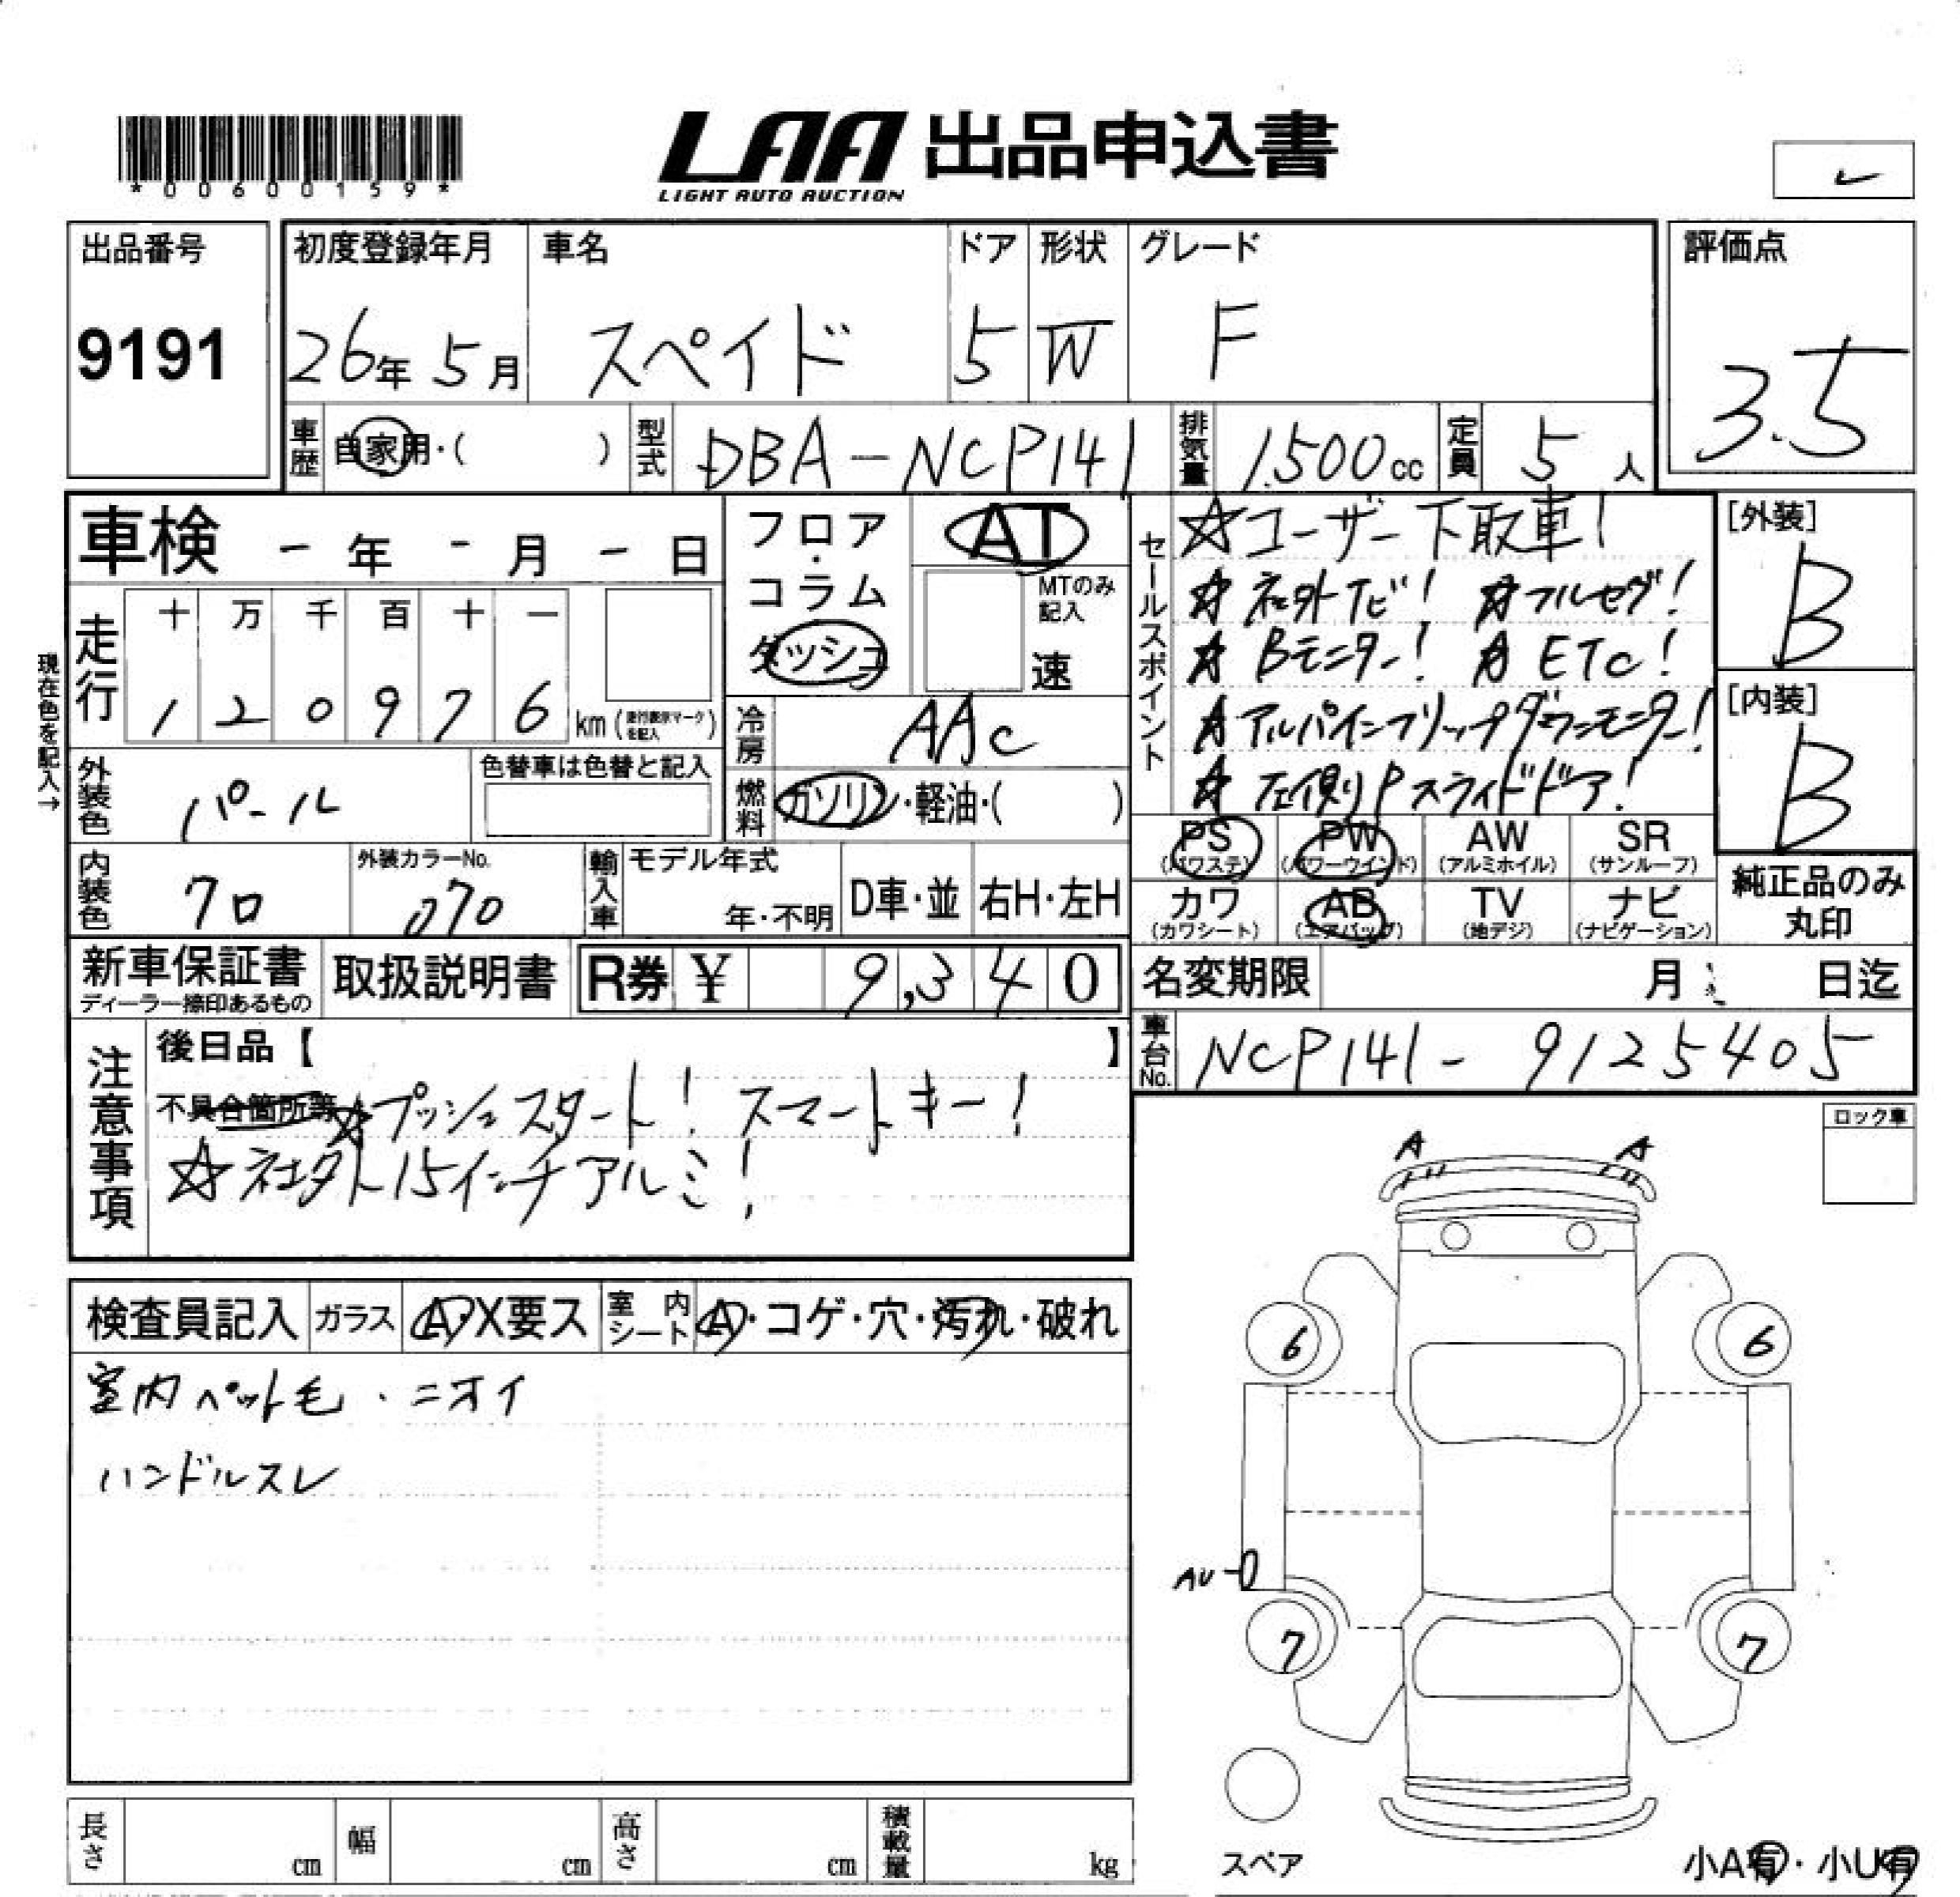 *00600159*
LAA 出品申込書
LIGHT AUTO AUCTION
出品番号
9191
初度登録年月
26年 5月
車名
スペイド
ドア
5
形状
W
グレード
F
評価点
3.5
車歴 自家用・( )
型式 DBA-NCP141
排気量 1,500cc
定員 5人
車検 -年 -月 -日
フロア・コラム
ダッシュ
AT
MTのみ記入
速
セールスポイント
☆ユーザー下取車!
☆社外ナビ! ☆フルセグ!
☆Bモニター! ☆ETC!
☆アルパインフリップダウンモニター!
☆左側Pスライドドア!
[外装]
B
[内装]
B
現在色を記入→
走行
十 万 千 百 十 一
1 2 0 9 7 6 km(走行表示マークを記入)
冷房 AAC
外装色 パール
色替車は色替と記入
燃料 ガソリン・軽油・( )
PS (パワステ) PW (パワーウインド) AW (アルミホイル) SR (サンルーフ)
カワ (カワシート) AB (エアバッグ) TV (地デジ) ナビ (ナビゲーション)
純正品のみ丸印
内装色 クロ
外装カラーNo. 070
輸入車
モデル年式
年・不明
D車・並
右H・左H
新車保証書
ディーラー捺印あるもの
取扱説明書
R券 ¥ 9,340
名変期限 月 日迄
車台No. NCP141-9125405
注意事項
後日品【 】
不具合箇所等 ☆プッシュスタート! スマートキー!
☆社外15インチアルミ!
ロック車
A A
検査員記入 ガラス A・X要ス 室内シート A・コゲ・穴・汚れ・破れ
室内ペット毛・ニオイ
ハンドルスレ
6 6
AU
7 7
スペア
小A有・小U有
長さ cm 幅 cm 高さ cm 積載量 kg